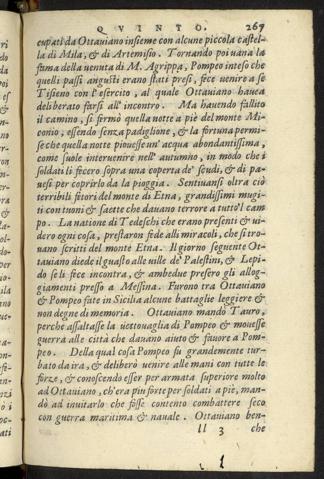 QVINTO. 267
cupati da Ottaviano insieme con alcune piccola castel-
la di Mila, & di Artemisio. Tornando poi vana la
fama della venuta di M. Agrippa, Pompeo inteso che
quelli passi angusti erano stati presi, fece venire a se
Tisieno con l'esercito, al quale Ottaviano haueа
deliberato farsi all' incontro. Ma hauendo fallito
il camino, si fermò quella notte a piè del monte Mi-
conio, essendo senza padiglione, & la fortuna permi-
se che quella notte piouesse un' acqua abondantissima,
come suole interuenire nell' autumno, in modo che i
soldati si fecero sopra una coperta de' scudi, & di pa-
uesi per coprirlo da la pioggia. Sentiuansi oltra ciò
terribili fitori del monte di Etna, grandissimi mugi-
ti con tuoni & saette che dauano terrore a tutto'l cam
po. La natione di Tedeschi che erano presenti & ui-
dero ogni cosa, prestaron fede alli miracoli, che si tro-
uano scritti del monte Etna. Il giorno seguente Ot-
tauiano diede il guasto alle uille de' Palestini, & Lepi-
do se li fece incontra, & ambedue presero gli allog-
giamenti presso a Messina. Furono tra Ottaviano
& Pompeo fate in Sicilia alcune battaglie leggiere &
non degne di memoria. Ottaviano mandò Tauro,
perche assaltasse la uettouaglia di Pompeo & mouesse
guerra alle città che dauano aiuto & fauore a Pom-
peo. Della qual cosa Pompeo fu grandemente tur-
bato da ira, & deliberò uenire alle mani con tutte le
forze, & conoscendo esser per armata superiore molto
ad Ottaviano, ch'era piu forte per soldati a piè, man-
dò ad inuitarlo che fosse contento combattere seco
con guerra maritima & nauale. Ottaviano ben-
ll 3 che